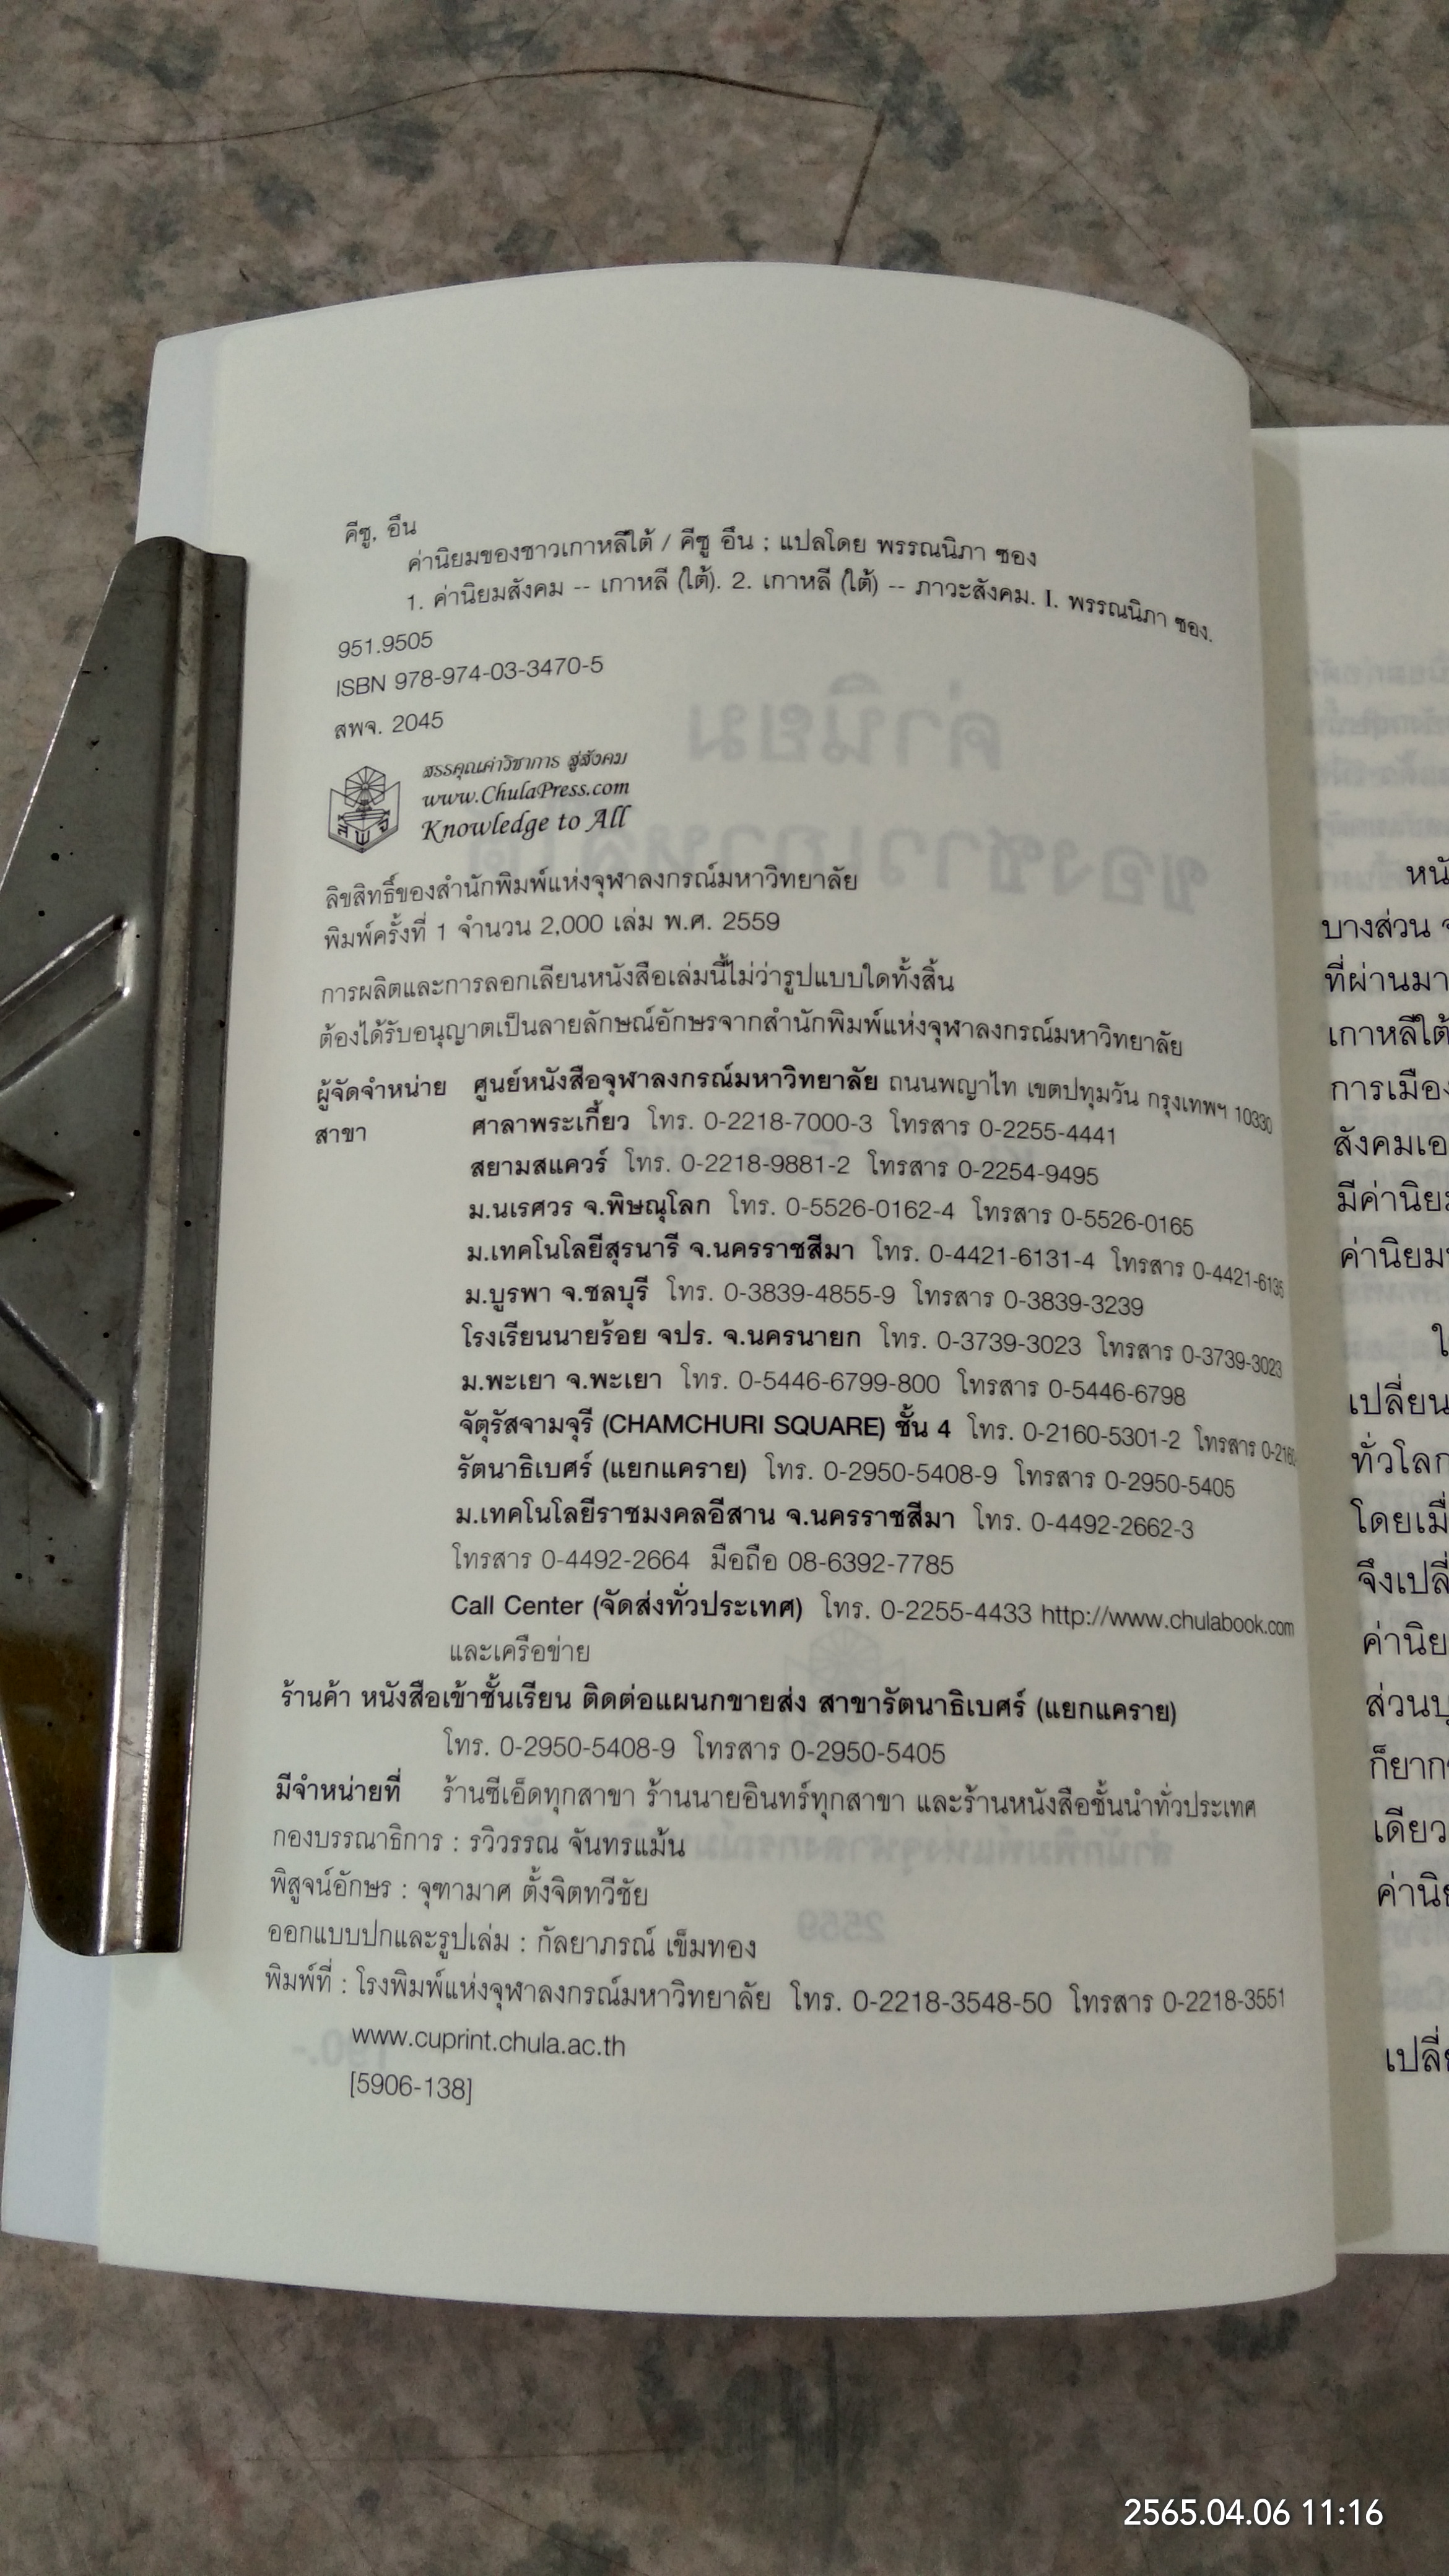 คีซู, อึน
ค่านิยมของชาวเกาหลีใต้ / คีซู อึน ; แปลโดย พรรณนิภา ซอง
1. ค่านิยมสังคม -- เกาหลี (ใต้). 2. เกาหลี (ใต้) -- ภาวะสังคม. I. พรรณนิภา ซอง.
951.9505
ISBN 978-974-03-3470-5
สพจ. 2045
สรรคุณค่าวิชาการ สู่สังคม
www.ChulaPress.com
Knowledge to All
ลิขสิทธิ์ของสำนักพิมพ์แห่งจุฬาลงกรณ์มหาวิทยาลัย
พิมพ์ครั้งที่ 1 จำนวน 2,000 เล่ม พ.ศ. 2559
การผลิตและการลอกเลียนหนังสือเล่มนี้ไม่ว่ารูปแบบใดทั้งสิ้น
ต้องได้รับอนุญาตเป็นลายลักษณ์อักษรจากสำนักพิมพ์แห่งจุฬาลงกรณ์มหาวิทยาลัย
ผู้จัดจำหน่าย ศูนย์หนังสือจุฬาลงกรณ์มหาวิทยาลัย ถนนพญาไท เขตปทุมวัน กรุงเทพฯ 10330
สาขา ศาลาพระเกี้ยว โทร. 0-2218-7000-3 โทรสาร 0-2255-4441
สยามสแควร์ โทร. 0-2218-9881-2 โทรสาร 0-2254-9495
ม.นเรศวร จ.พิษณุโลก โทร. 0-5526-0162-4 โทรสาร 0-5526-0165
ม.เทคโนโลยีสุรนารี จ.นครราชสีมา โทร. 0-4421-6131-4 โทรสาร 0-4421-6135
ม.บูรพา จ.ชลบุรี โทร. 0-3839-4855-9 โทรสาร 0-3839-3239
โรงเรียนนายร้อย จปร. จ.นครนายก โทร. 0-3739-3023 โทรสาร 0-3739-3023
ม.พะเยา จ.พะเยา โทร. 0-5446-6799-800 โทรสาร 0-5446-6798
จัตุรัสจามจุรี (CHAMCHURI SQUARE) ชั้น 4 โทร. 0-2160-5301-2 โทรสาร
รัตนาธิเบศร์ (แยกแคราย) โทร. 0-2950-5408-9 โทรสาร 0-2950-5405
ม.เทคโนโลยีราชมงคลอีสาน จ.นครราชสีมา โทร. 0-4492-2662-3
โทรสาร 0-4492-2664 มือถือ 08-6392-7785
Call Center (จัดส่งทั่วประเทศ) โทร. 0-2255-4433 http://www.chulabook.com
และเครือข่าย
ร้านค้า หนังสือเข้าชั้นเรียน ติดต่อแผนกขายส่ง สาขารัตนาธิเบศร์ (แยกแคราย)
โทร. 0-2950-5408-9 โทรสาร 0-2950-5405
มีจำหน่ายที่ ร้านซีเอ็ดทุกสาขา ร้านนายอินทร์ทุกสาขา และร้านหนังสือชั้นนำทั่วประเทศ
กองบรรณาธิการ : รวิวรรณ จันทรแม้น
พิสูจน์อักษร : จุฑามาศ ตั้งจิตทวีชัย
ออกแบบปกและรูปเล่ม : กัลยาภรณ์ เข็มทอง
พิมพ์ที่ : โรงพิมพ์แห่งจุฬาลงกรณ์มหาวิทยาลัย โทร. 0-2218-3548-50 โทรสาร 0-2218-3551
www.cuprint.chula.ac.th
[5906-138]
บางส่วน
ที่ผ่านมา
เกาหลีใต้
การเมือง
สังคมเอ
มีค่านิย
ค่านิยม
เปลี่ยน
ทั่วโลก
โดยเมื่
จึงเปลี่
ค่านิย
ส่วนบุ
ก็ยาก
เดียว
ค่านิ
เปลี่
2565.04.06 11:16